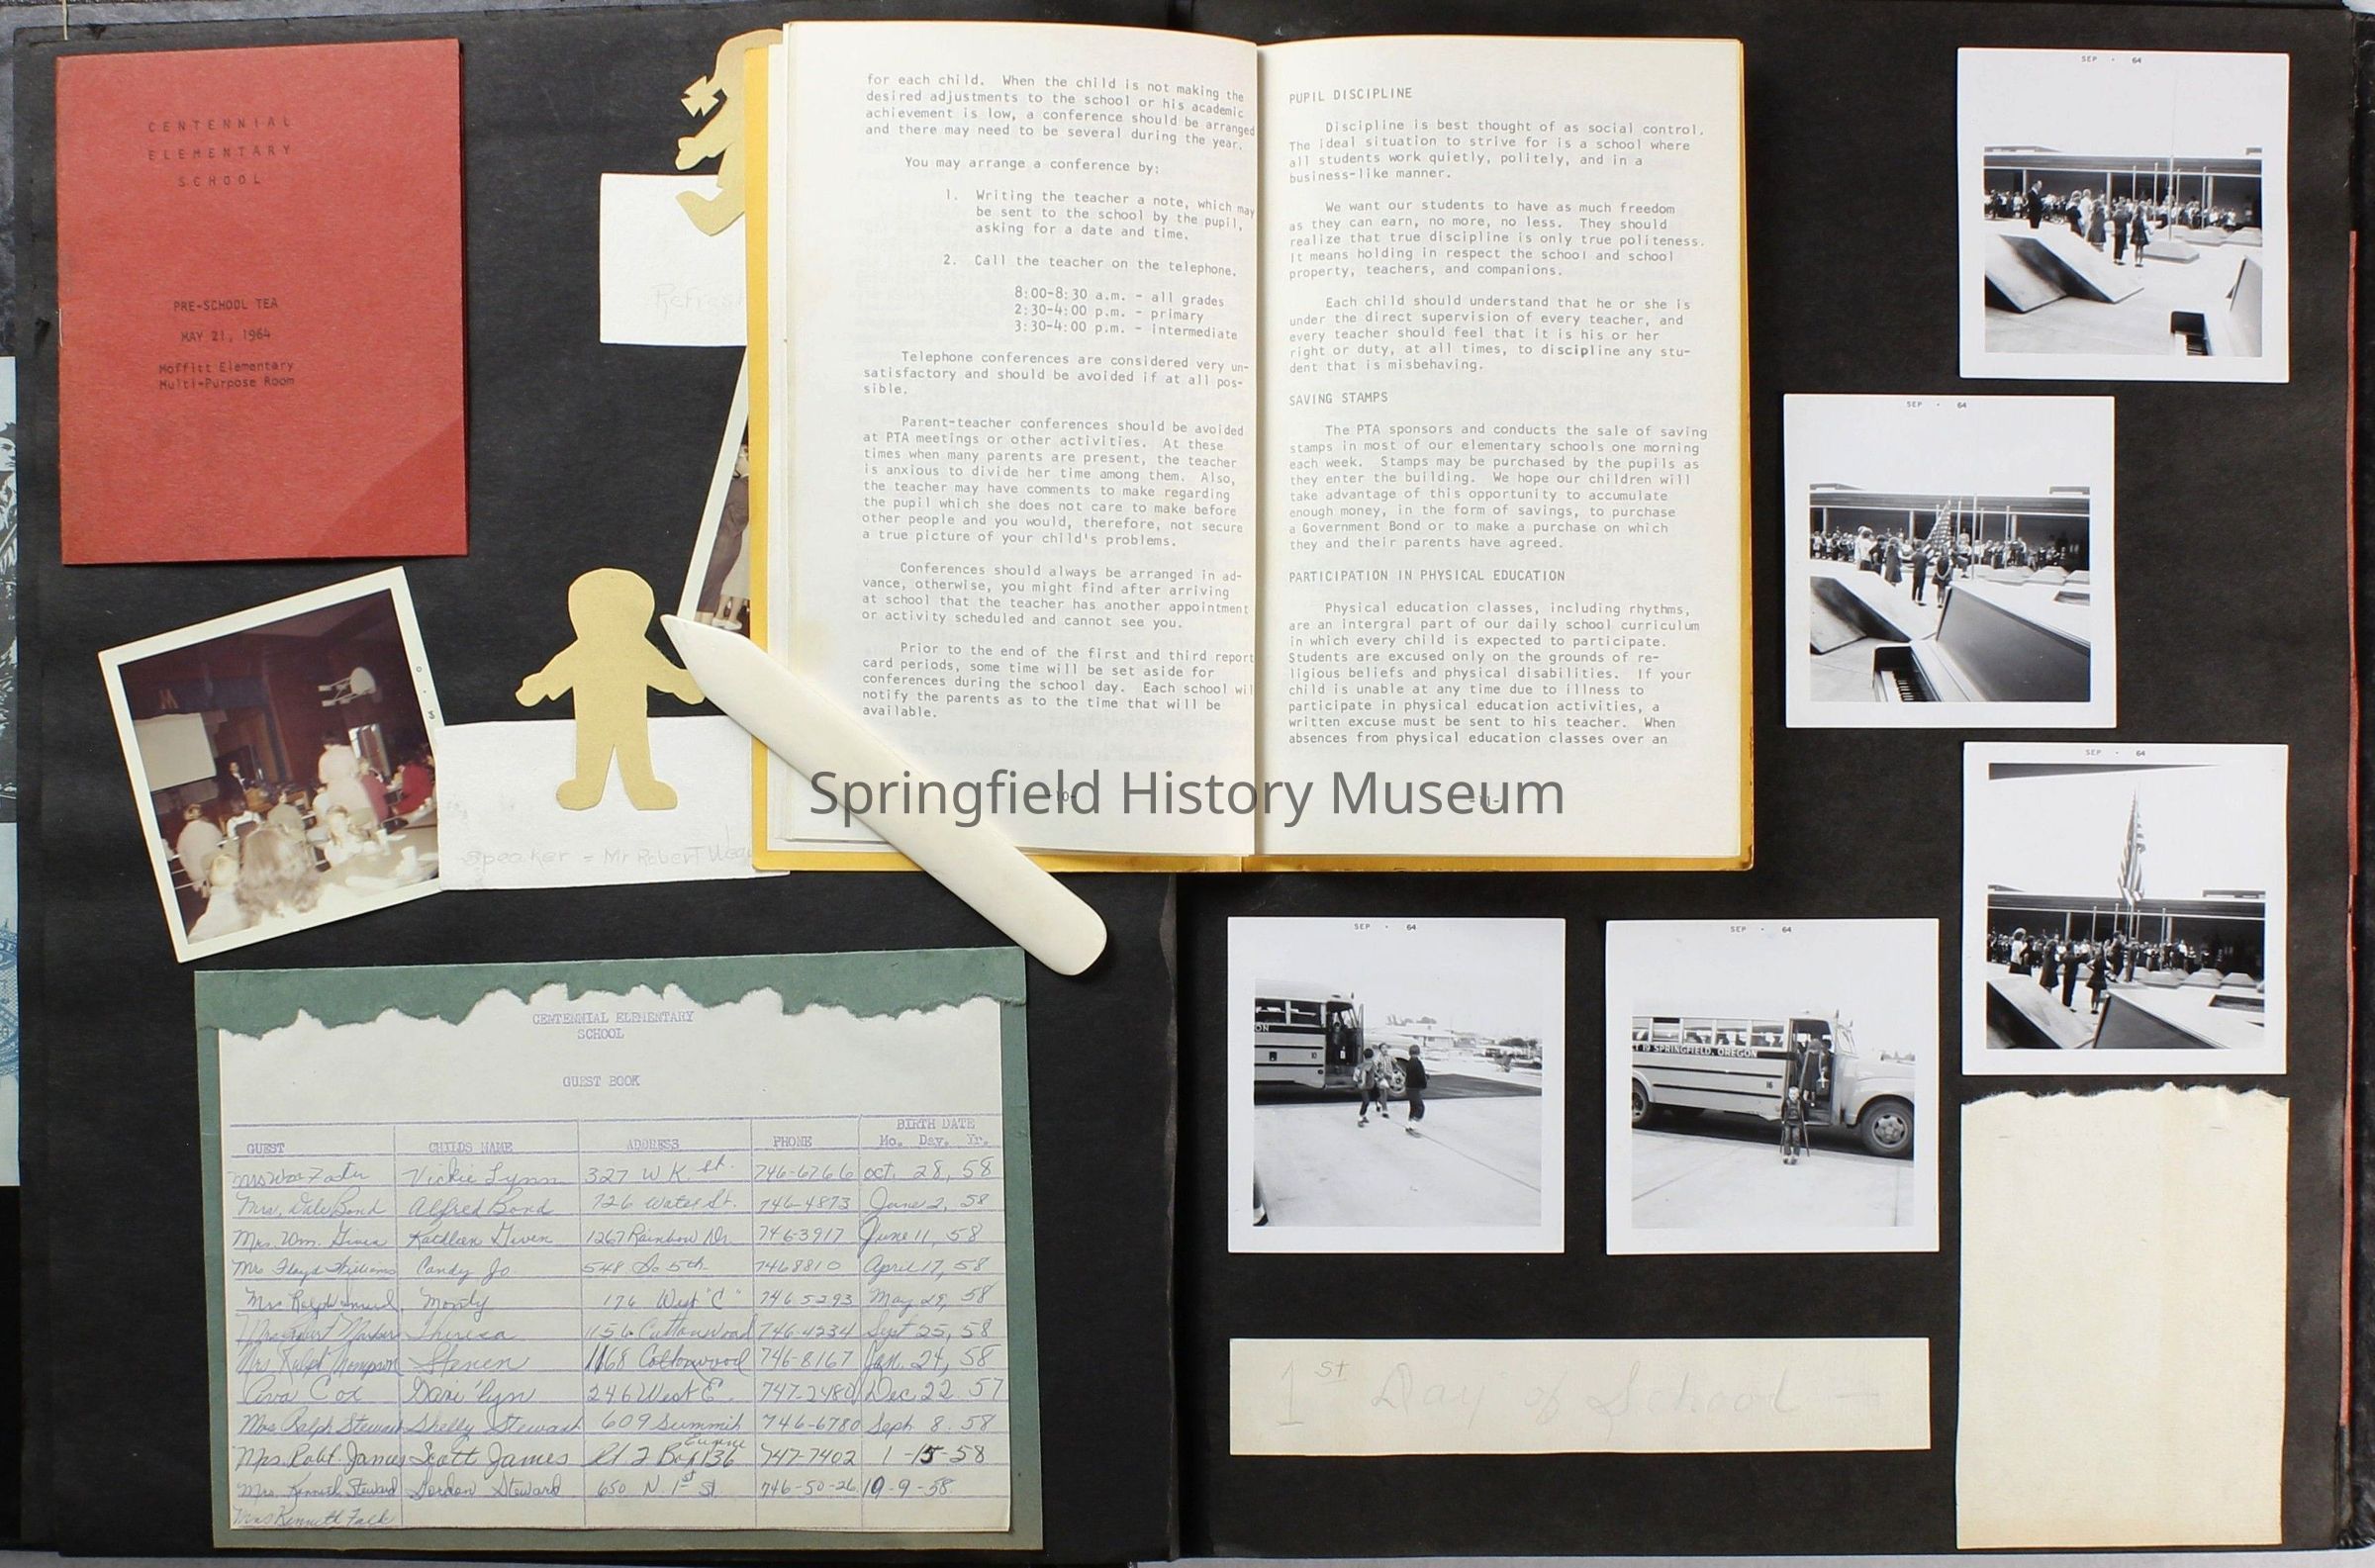 CENTENNIAL
ELEMENTARY
SCHOOL
PRE-SCHOOL TEA
MAY 21, 1964
Moffitt Elementary
Multi-Purpose Room
Refresh
for each child. When the child is not making the
desired adjustments to the school or his academic
achievement is low, a conference should be arranged
and there may need to be several during the year.
You may arrange a conference by:
1. Writing the teacher a note, which may
be sent to the school by the pupil,
asking for a date and time.
2. Call the teacher on the telephone.
8:00-8:30 a.m. - all grades
2:30-4:00 p.m. - primary
3:30-4:00 p.m. - intermediate
Telephone conferences are considered very un-
satisfactory and should be avoided if at all pos-
sible.
Parent-teacher conferences should be avoided
at PTA meetings or other activities. At these
times when many parents are present, the teacher
is anxious to divide her time among them. Also,
the teacher may have comments to make regarding
the pupil which she does not care to make before
other people and you would, therefore, not secure
a true picture of your child's problems.
Conferences should always be arranged in ad-
vance, otherwise, you might find after arriving
at school that the teacher has another appointment
or activity scheduled and cannot see you.
Prior to the end of the first and third report
card periods, some time will be set aside for
conferences during the school day. Each school wil
notify the parents as to the time that will be
available.
-10-
PUPIL DISCIPLINE
Discipline is best thought of as social control.
The ideal situation to strive for is a school where
all students work quietly, politely, and in a
business-like manner.
We want our students to have as much freedom
as they can earn, no more, no less. They should
realize that true discipline is only true politeness.
It means holding in respect the school and school
property, teachers, and companions.
Each child should understand that he or she is
under the direct supervision of every teacher, and
every teacher should feel that it is his or her
right or duty, at all times, to discipline any stu-
dent that is misbehaving.
SAVING STAMPS
The PTA sponsors and conducts the sale of saving
stamps in most of our elementary schools one morning
each week. Stamps may be purchased by the pupils as
they enter the building. We hope our children will
take advantage of this opportunity to accumulate
enough money, in the form of savings, to purchase
a Government Bond or to make a purchase on which
they and their parents have agreed.
PARTICIPATION IN PHYSICAL EDUCATION
Physical education classes, including rhythms,
are an intergral part of our daily school curriculum
in which every child is expected to participate.
Students are excused only on the grounds of re-
ligious beliefs and physical disabilities. If your
child is unable at any time due to illness to
participate in physical education activities, a
written excuse must be sent to his teacher. When
absences from physical education classes over an
-11-
Springfield History Museum
Speaker = Mr Robert
SEP · 64
SEP · 64
SEP · 64
SEP · 64
SEP · 64
ON
10
CT 19 SPRINGFIELD, OREGON
16
1st Day of School
CENTENNIAL ELEMENTARY
SCHOOL
GUEST BOOK
GUEST CHILDS NAME ADDRESS PHONE BIRTH DATE
Mo. Day. Yr.
Vickie Lynn 327 W K. St. 746-6766 Oct. 28, 58
Mrs. Dale Bond Alfred Bond 726 Water St. 746-4873 June 2, 58
Mrs. Wm. Given Kathleen Given 1267 Rainbow Dr. 746-3917 June 11, 58
Mrs Floyd Williams Candy Jo 548 So 5th 7468810 April 17, 58
Mrs Ralph Monty 176 West "C" 746 5293 May 29, 58
Mrs Robert Theresa 1156 Cottonwood 746-4234 Sept 25, 58
Mrs Ralph Thompson Steven 1168 Cottonwood 746-8167 Jan. 24, 58
Ava Cox Dari'lyn 246 West E. 747-2480 Dec 22 57
Mrs Ralph Stewart Shelly Stewart 609 Summit 746-6780 Sept 8. 58
Mrs. Robt. James Scott James Rt 2 Box 136 Eugene 747-7402 1-15-58
Mrs. Kenneth Steward Gordon Steward 650 N. 1st St 746-50-26 10-9-58
Mrs Kenneth Falk